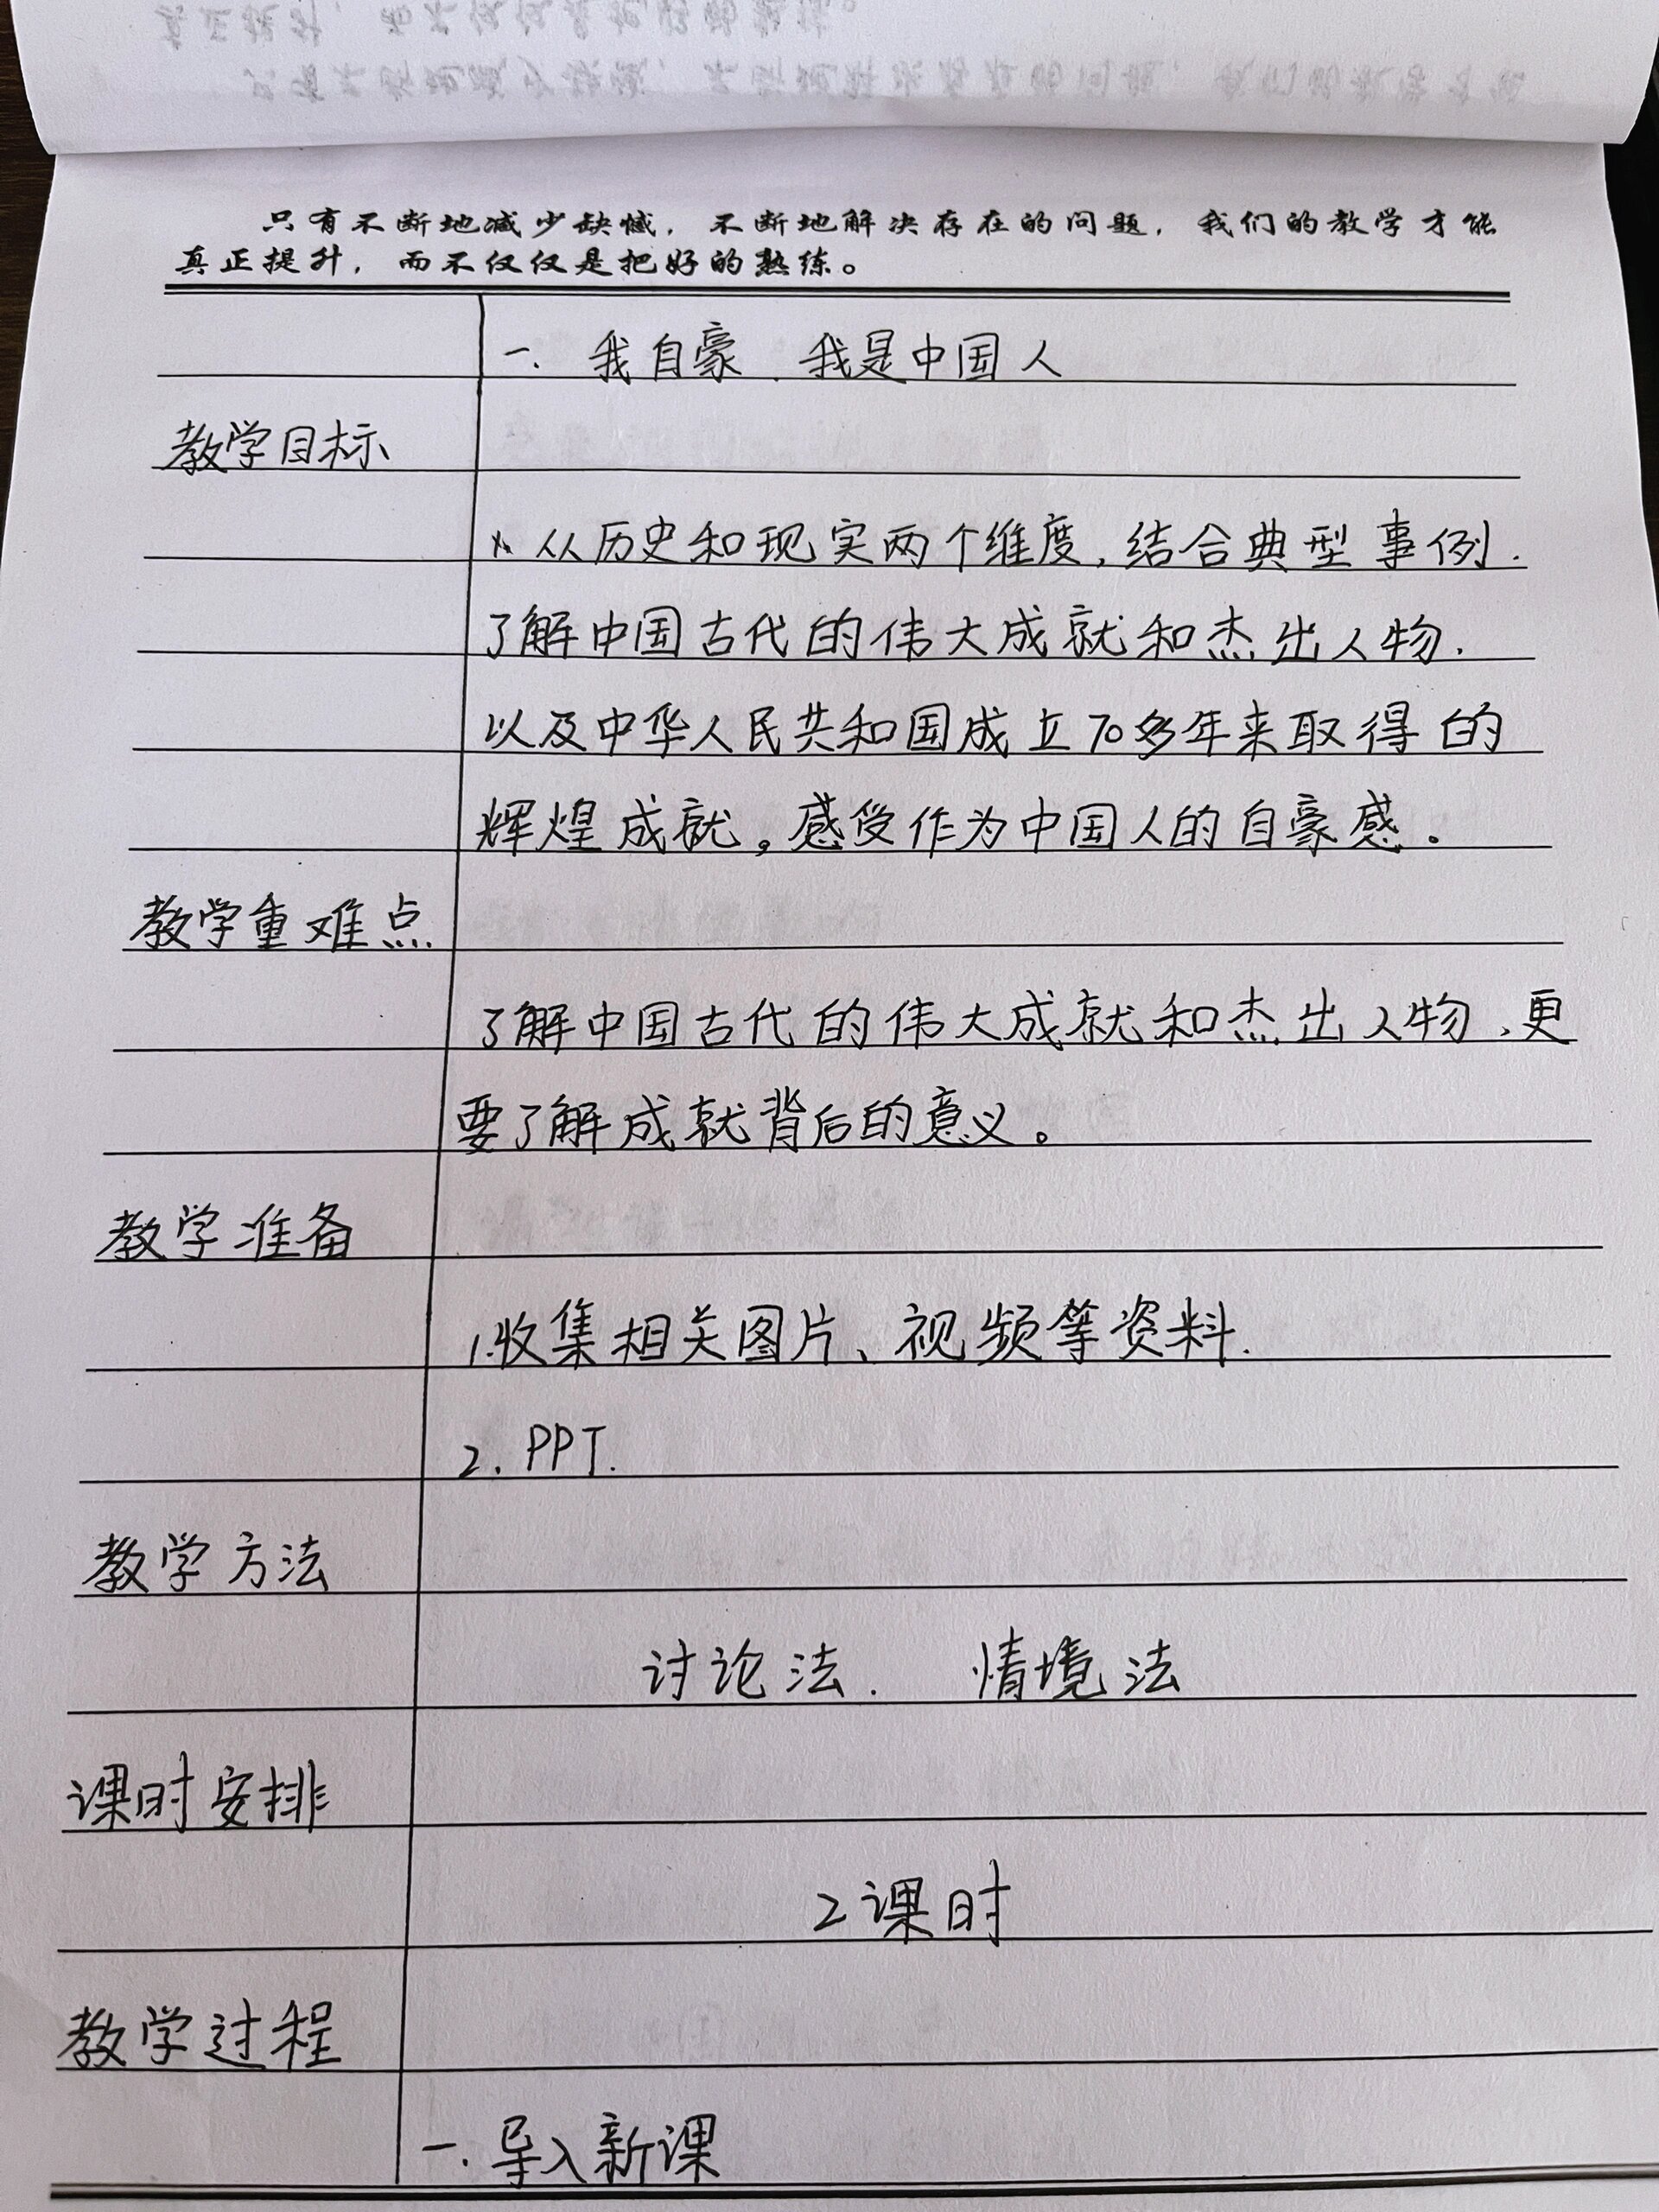 只有不断地减少缺憾，不断地解决存在的问题，我们的教学才能
真正提升，而不仅仅是把好的熟练。
一. 我自豪.我是中国人
教学目标
从历史和现实两个维度,结合典型事例.
了解中国古代的伟大成就和杰出人物.
以及中华人民共和国成立70多年来取得的
辉煌成就。感受作为中国人的自豪感.
教学重难点
了解中国古代的伟大成就和杰出人物、更
要了解成就背后的意义。
教学准备
1.收集相关图片、视频等资料.
2. PPT.
教学方法
讨论法. 情境法
课时安排
2课时
教学过程
一. 导入新课